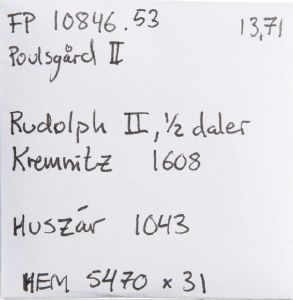 FP 10846.53 13,71
Poulsgård II
Rudolph II, ½ daler
Kremnitz 1608
Huszár 1043
HEM 5470 x 31